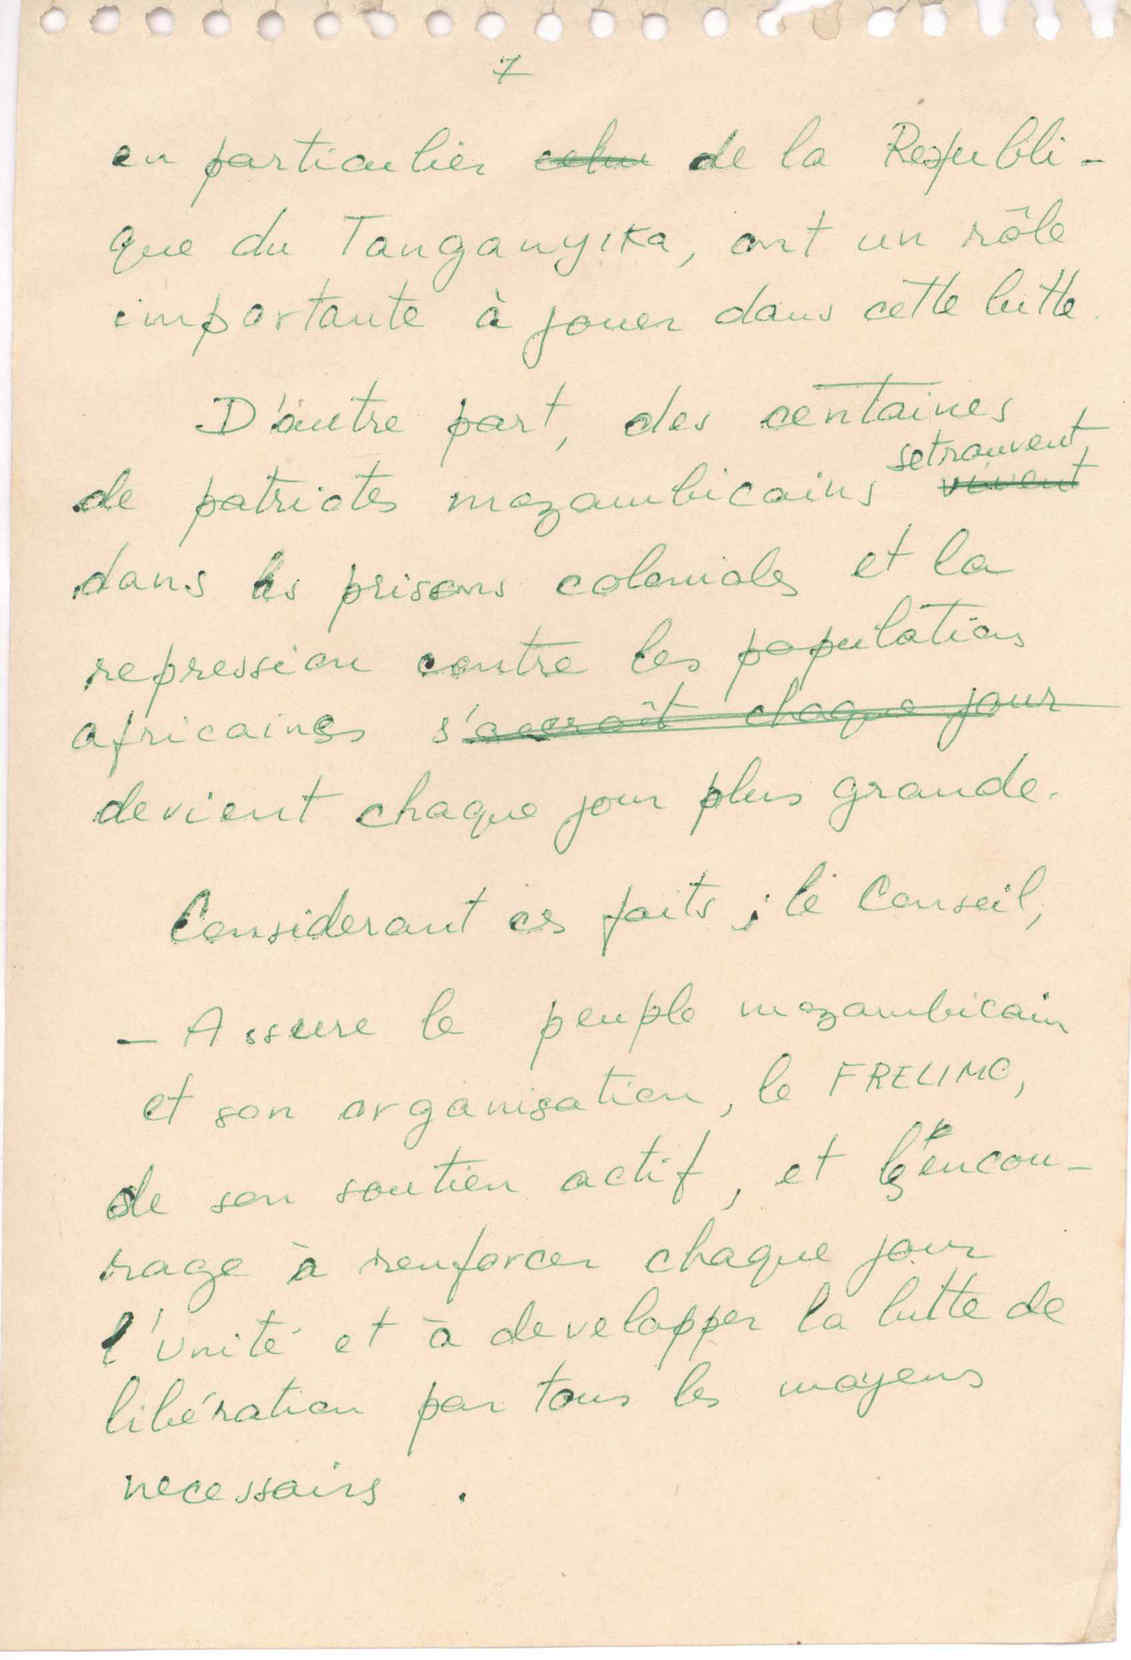 7
en particulier celui de la Republi-
que du Tanganyika, ont un rôle
importante à jouer dans cette lutte.
D'autre part, des centaines
se trouvent
de patriotes mozambicains vivent
dans les prisons coloniales et la
repression contre les populations
africaines s'accroît chaque jour
devient chaque jour plus grande.
Considerant ces faits, le Conseil,
- Assure le peuple mozambicain
et son organisation, le FRELIMO,
de son soutien actif, et l'encou-
rage à renforcer chaque jour
l'unité et à developper la lutte de
libération par tous les moyens
necessairs.